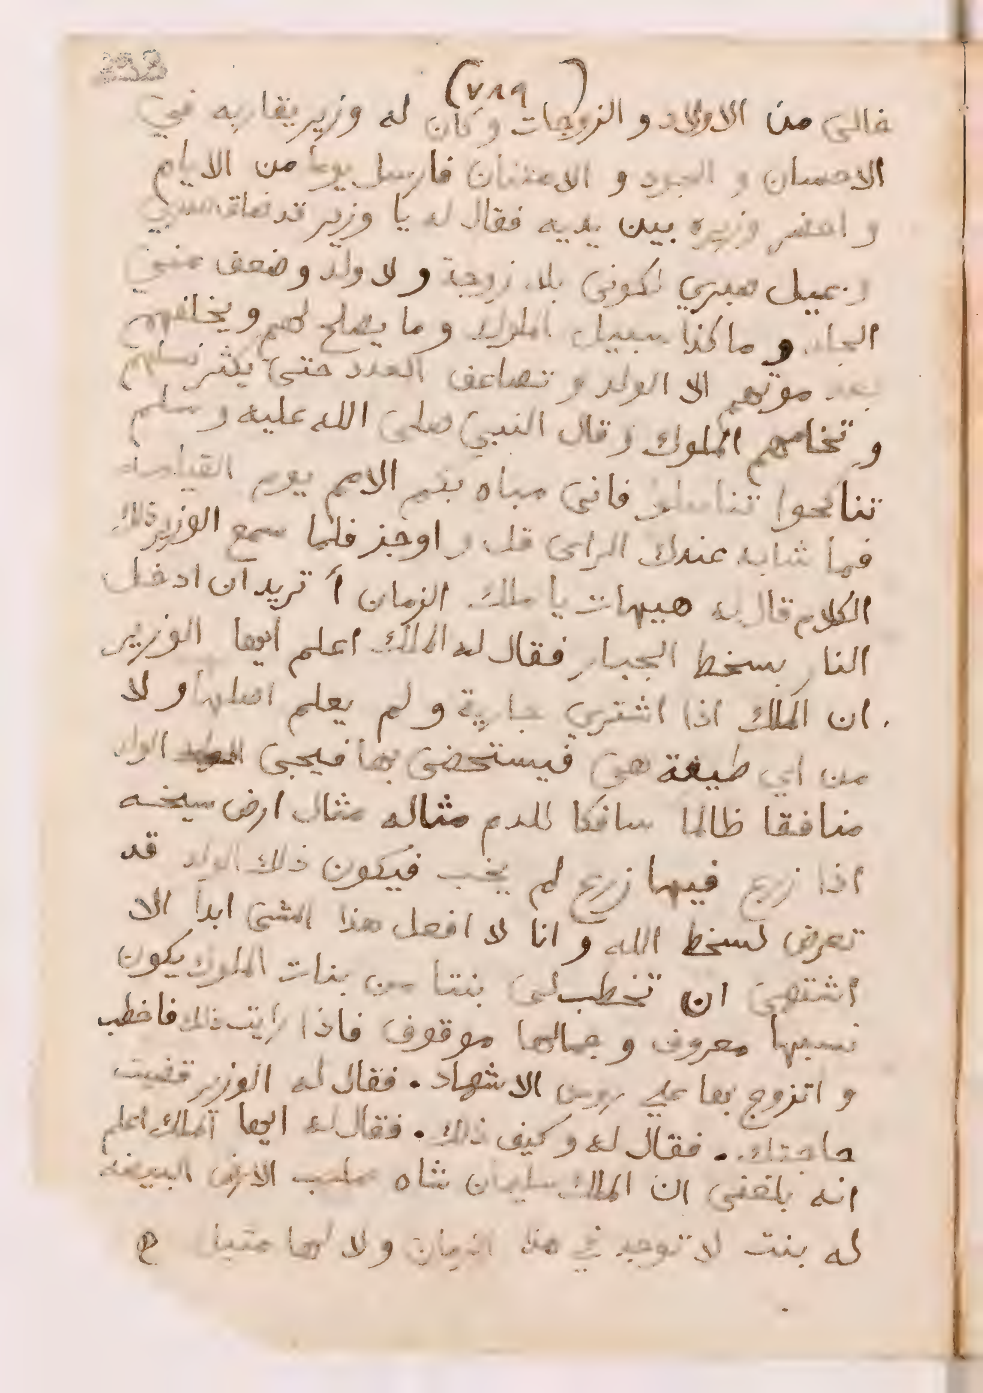 (٧٨٩)
خالى من الاولاد و الزوجات و كان له وزير يقاربه في
الاحسان و الجود و الامتنان فارسل يوما من الايام
و احضر وزيره بين يديه فقال له يا وزير قد ضاق صدري
و عيل صبري لكونى بلا زوجة و لا ولد و ضعف منى
الجلد و ما كذا سبيل الملوك و ما يصلح لهم و يخلفهم
بعد موتهم الا الولد و تضاعف العدد حتى يكثر نسلهم
و تخامهم الملوك و قال النبي صلى الله عليه و سلم
تناكحوا تناسلوا فانى مباه بكم الامم يوم القيامه
فما عندك الراى قل و اوجز فلما سمع الوزير ذلك
الكلام قال له هيهات يا ملك الزمان أ تريد ان ادخل
النار بسخط الجبار فقال له الملك اعلم ايها الوزير
ان الملك اذا اشتري جارية و لم يعلم اصلها و لا
من اي طيفة هى فيستحضى بها فيجى الولد
منافقا ظالما سافكا للدم مثاله مثال ارض سبخه
اذا زرع فيها زرع لم يخب فيكون ذلك الولد قد
تعرض لسخط الله و انا لا افعل هذا الشى ابدا الا
اشتهى ان تخطب لى بنتا من بنات الملوك يكون
نسبها معروف و جمالها موقوف فاذا رايت ذلك فاخطب
و اتزوج بها علي روس الاشهاد. فقال له الوزير قضيت
حاجتك. فقال له و كيف ذلك. فقال له ايها الملك اعلم
انه بلغنى ان الملك سليمان شاه صاحب الارض البيضه
له بنت لا توجد في هذا الزمان و لا لها مثيل